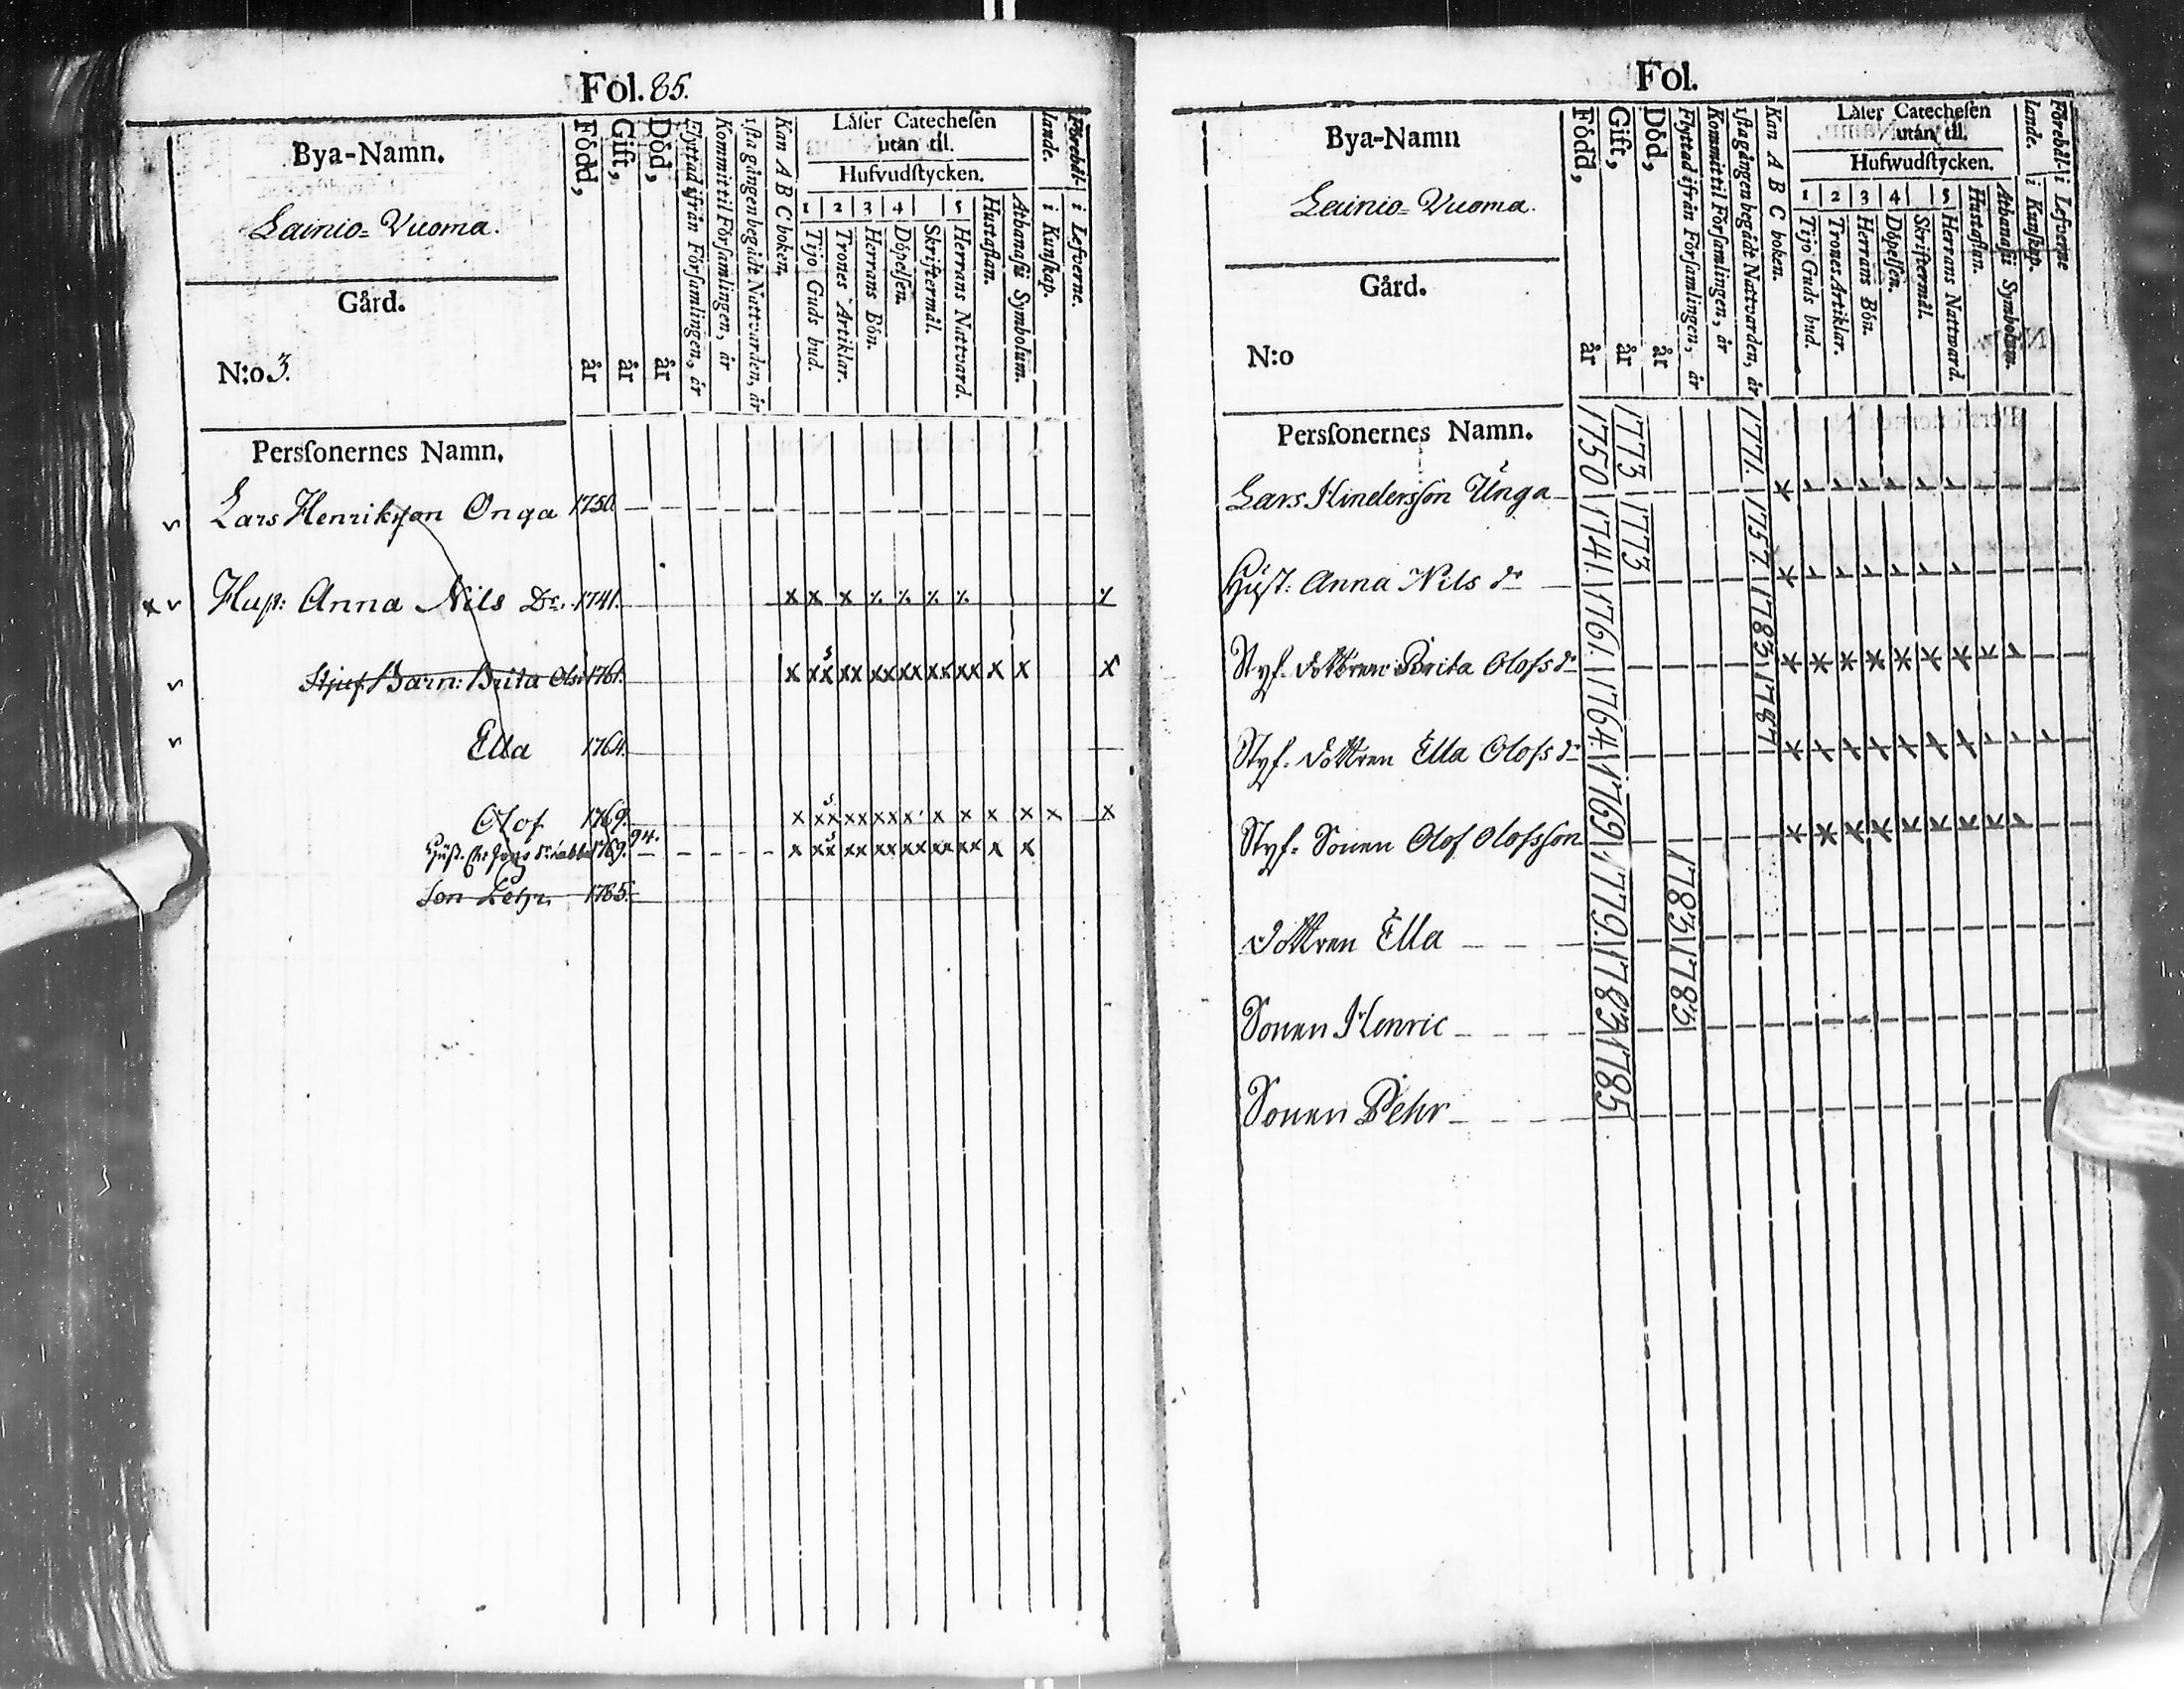 Fol. 85.
Bya-Namn.
Lainio=Vuoma.
Gård.
N:o 3.
Född, år
Gift, år
Död, år
Flyttad ifrån Församlingen, år
Kommit til Församlingen, år
1sta gången begådt Nattvarden, år
Kan A B C boken.
Läser Catechesen
utan til.
Hufvudstycken.
1 2 3 4 5
Tijo Guds bud.
Trones Artiklar.
Herrans Bön.
Döpelsen.
Skriftermål.
Herrans Nattvard.
Hustaflan.
Athanasii Symbolum.
Förehållande.
i Kunskap.
i Lefverne.
Personernes Namn.
Lars Henriksson Onga 1750
Hust: Anna Nils Dr. 1741.
Stjuf Barn: Brita Ols 1761.
Ella 1764.
Olof 1769.
Hust. 1769. 94.
Son Pehr. 1785.
Fol.
Bya-Namn
Lainio=Vuoma.
Gård.
N:o
Född, år
Gift, år
Död, år
Flyttad ifrån Församlingen, år
Kommit til Församlingen, år
1sta gången begådt Nattvarden, år
Kan A B C boken.
Läser Catechesen
utan til.
Hufwudstycken.
1 2 3 4 5
Tijo Guds bud.
Trones Artiklar.
Herrans Bön.
Döpelsen.
Skriftermål.
Herrans Nattward.
Hustaflan.
Athanasii Symbolum.
Förehållande.
i Kunskap.
i Lefverne
Personernes Namn.
Lars Hindersson Unga 1750 1773 1771.
Hust: Anna Nils dr 1741. 1773 1757.
Styf. dottren Brita Olofs dr 1761. 1783
Styf. dottren Ella Olofs dr 1764. 1787
Styf. Sonen Olof Olofsson 1769
dottren Ella 1779. 1783
Sonen Henric 1783 1785
Sonen Pehr 1785